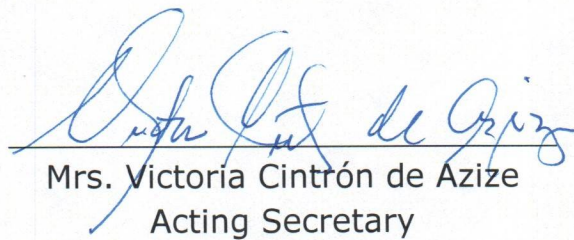 Victor Cint de Azize
Mrs. Victoria Cintrón de Azize
Acting Secretary